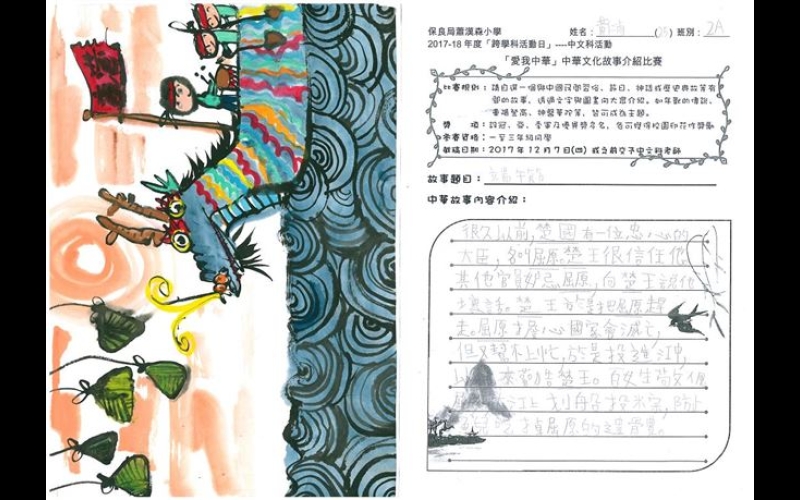 保良局蕭漢森小學
姓名：
班別：2A
2017-18 年度「跨學科活動日」----中文科活動
「愛我中華」中華文化故事介紹比賽
比賽規則：請自選一個與中國民間習俗、節日、神話或歷史典故等有
關的故事，透過文字與圖畫向大眾介紹。如年獸的傳說、
重陽登高、神醫華陀等，皆可成為主題。
獎 項：設冠、亞、季軍及優異獎多名，各可獲得校園印花作獎勵
參賽資格：一至三年級同學
截稿日期：2017 年 12 月 7 日(四) 或之前交予中文科老師
故事題目：端午節
中華故事內容介紹：
很久以前，楚國有一位忠心的
大臣，名叫屈原。楚王很信任他，
其他官員妒忌屈原，向楚王說他
壞話。楚王於是把屈原趕
走。屈原擔心國家會滅亡，
但又幫不上忙，於是投進江中，
來勸告楚王。百姓
江上划船投米
掉屈原的遺骨